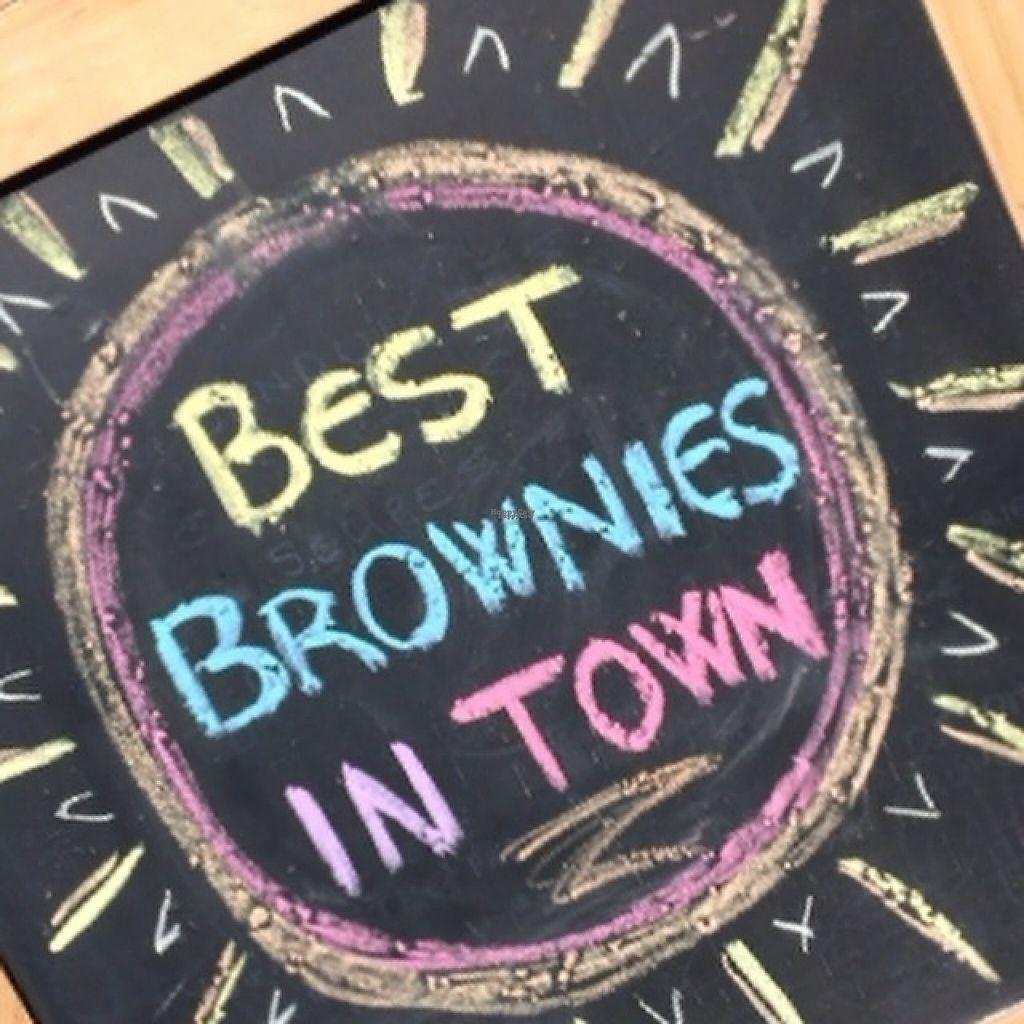 BEST
BROWNIES
IN TOWN
HappyCow